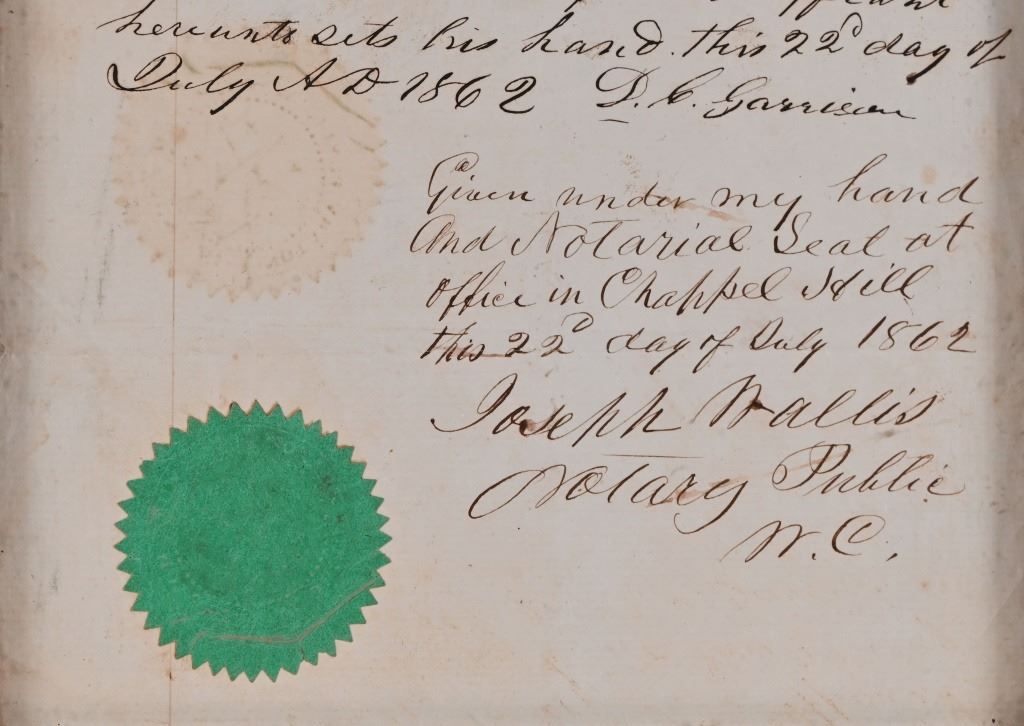 hereunto sets his hand. this 22d day of
July A D 1862 D. C. Garrison
Given under my hand
And Notarial Seal at
office in Chappel Hill
this 22d day of July 1862
Joseph Wallis
Notary Public
W. C.